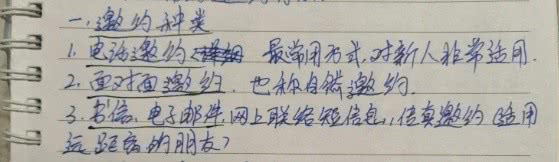 一、邀约种类
1. 电话邀约 最常用方式,对新人非常适用.
2. 面对面邀约,也称自备邀约.
3. 书信、电子邮件,网上联络短信息,传真邀约(适用
远距离的朋友)